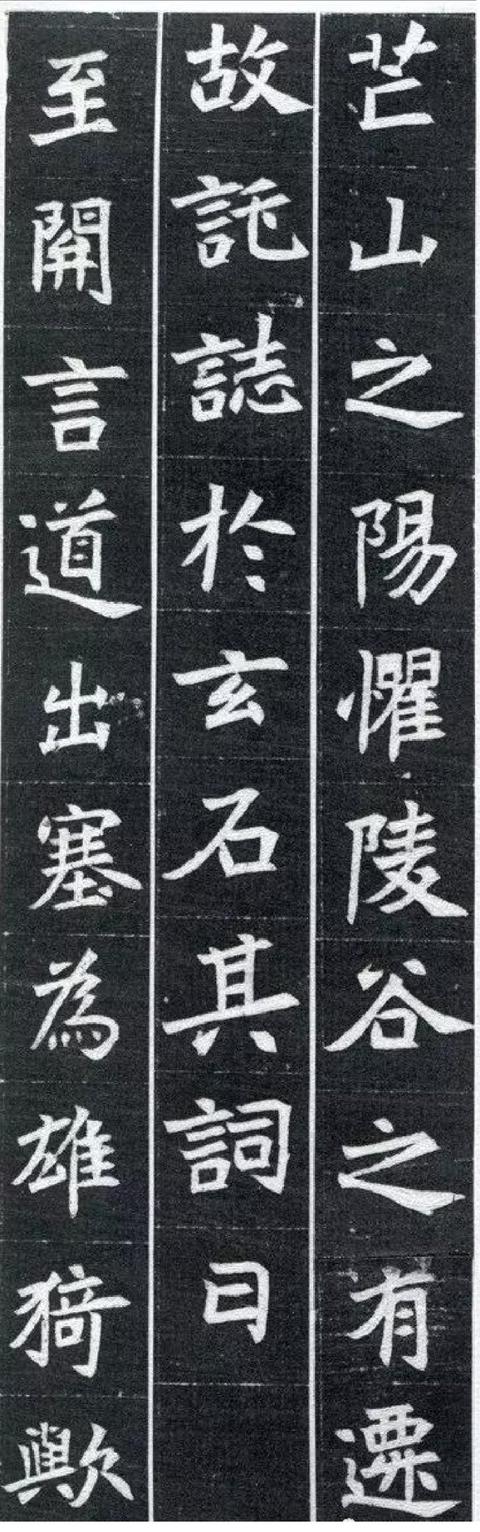 芒山之陽懼陵谷之有遷
故託誌於玄石其詞曰
至開言道出塞為雄猗歟